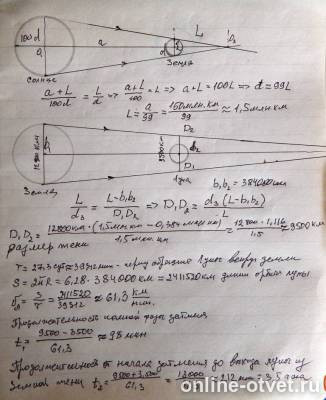 100d
d
a
L
A₃
Солнце
Земля
(a+L)/100d = L/d => (a+L)/100 = L => a+L = 100L => a = 99L
L = a/99 = 150 млн.км/99 ≈ 1,5 млн км
12800 км
3500 км
D₁
d₂
D₂
Земля
Луна
b₁b₂ = 384000 км
L/d₃ = (L-b₁b₂)/D₁D₂ => D₁D₂ = d₃(L-b₁b₂)/L
D₁D₂ = 12800 км·(1,5 млн км - 0,384 млн км)/1,5 млн км ≈ 12800·1,116/1,5 ≈ 9500 км
размер тени
T = 27,3 сут ≈ 39312 мин - обращения Луны вокруг Земли
S = 2πR = 6,28·384000 км = 2411520 км длина орбиты Луны
= S/T = 2411520/39312 ≈ 61,3 км/мин.
Продолжительность полной фазы затмения
t₁ = (9500-3500)/61,3 ≈ 98 мин
Продолжительность от начала затмения до выхода Луны из
земной тени t₂ = (9500+3500)/61,3 = 13000/61,3 ≈ 212 мин ≈ 3,5 часа
online-otvet.ru